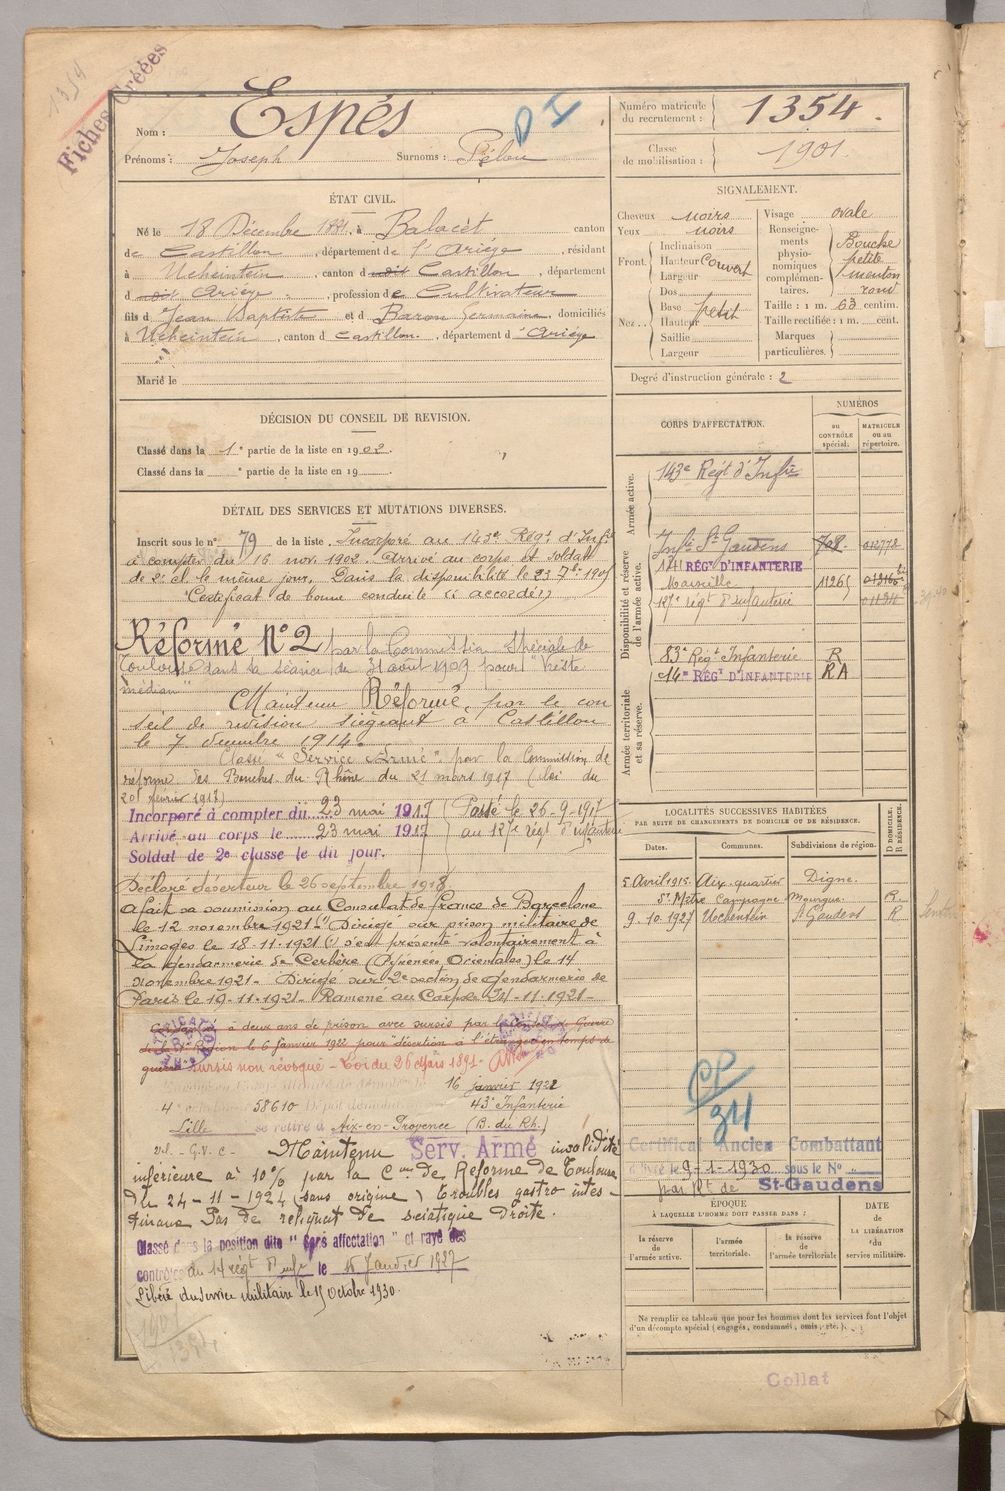 1354
Fiches Créées
Nom : Espés
Prénoms : Joseph Surnoms :
Numéro matricule du recrutement : 1354.
Classe de mobilisation : 1901.
ÉTAT CIVIL.
Né le 18 Décembre 1881, à Balacét canton
de Castillon, département de l'Ariége, résidant
à Ucheintein, canton d dudit Castillon, département
d dudit Ariége, profession de Cultivateur
fils d Jean Baptiste et d Baron Germaine, domiciliés
à Ucheintein, canton d Castillon, département d' Ariége
Marié le
SIGNALEMENT.
Cheveux noirs
Yeux noirs
Front. Inclinaison
Hauteur Couvert
Largeur
Nez. Dos
Base petit
Hauteur
Saillie
Largeur
Visage ovale
Renseignements physionomiques complémentaires. Bouche petite menton rond
Taille : 1 m. 63 centim.
Taille rectifiée : 1 m. cent.
Marques particulières.
Degré d'instruction générale : 2
DÉCISION DU CONSEIL DE REVISION.
Classé dans la 1e partie de la liste en 1902.
Classé dans la e partie de la liste en 19
DÉTAIL DES SERVICES ET MUTATIONS DIVERSES.
Inscrit sous le n° 79 de la liste. Incorporé au 143e Régt d'Infie
à compter du 16 nov. 1902. Arrivé au corps et soldat
de 2e cl. le même jour. Dans la disponibilité le 23 7bre 1905
"Certificat de bonne conduite "accordé"
Réformé N°2 par la Commission Spéciale de
Toulouse dans sa séance du 31 août 1909 pour
médian"
Maintenu Réformé, par le con
seil de revision siégeant à Castillon
le 7 décembre 1914.
Classé "Service Armé" par la Commission de
réforme des Bouches du Rhône du 21 mars 1917 (loi du
20 février 1917)
Incorporé à compter du 23 mai 1917 Passé le 26-9-1917
Arrivé au corps le 23 mai 1917 au 127e régt d'infanterie
Soldat de 2e classe le dit jour.
Déclaré déserteur le 26 septembre 1918
A fait sa soumission au Consulat de France de Barcelone
le 12 novembre 1921 (1) Dirigé sur prison militaire de
Limoges le 18-11-1921 (1) s'est présenté volontairement à
la gendarmerie de Cerbère (Pyrénées Orientales) le 14
novembre 1921 - Dirigé sur 2e section de Gendarmerie de
Paris le 19-11-1921 - Ramené au Corps le 24-11-1921 -
Condamné à deux ans de prison avec sursis par le Conseil de Guerre
de la Région le 6 janvier 1922 pour "désertion à l'étranger en temps de
guerre" sursis non révoqué - Loi du 26 Mars 1891 -
16 janvier 1922
58610 43e Infanterie
Lille se retire à Aix-en-Provence (B. du Rh.)
Maintenu Serv. Armé invalidité
inférieure à 10% par la Con de Réforme de Toulouse
du 24-11-1924 (sans origine) troubles gastro intes-
tinaux Pas de reliquat de sciatique droite.
Classé dans la position dite "sans affectation" et rayé des
contrôles du 14 régt d'infie le 15 Janvier 1927
Libéré du service militaire le 15 Octobre 1930.
CORPS D'AFFECTATION.
NUMÉROS
au CONTRÔLE spécial.
MATRICULE ou au répertoire.
Armée active.
143e Régt d'Infie
Disponibilité et réserve de l'armée active.
Infie St Gaudens 708 012772
141 RÉGt D'INFANTERIE
Marseille
127e régt d'infanterie
Armée territoriale et sa réserve.
83e Régt Infanterie R
14e RÉGt D'INFANTERIE RA
LOCALITÉS SUCCESSIVES HABITÉES
PAR SUITE DE CHANGEMENTS DE DOMICILE OU DE RÉSIDENCE.
Dates. Communes. Subdivisions de région. D DOMICILE. R RÉSIDENCE.
5 Avril 1915. Aix. quartier Digne.
St Mitre Campagne R.
9.10.1927 Uchentein St Gaudens R
Certificat Ancien Combattant
délivré le 9-1-1930 sous le N°
par Ct de St-Gaudens
ÉPOQUE
À LAQUELLE L'HOMME DOIT PASSER DANS :
la réserve de l'armée active.
l'armée territoriale.
la réserve de l'armée territoriale
DATE de LA LIBÉRATION du service militaire.
Ne remplir ce tableau que pour les hommes dont les services font l'objet
d'un décompte spécial (engagés, condamnés, omis, etc.).
Collat